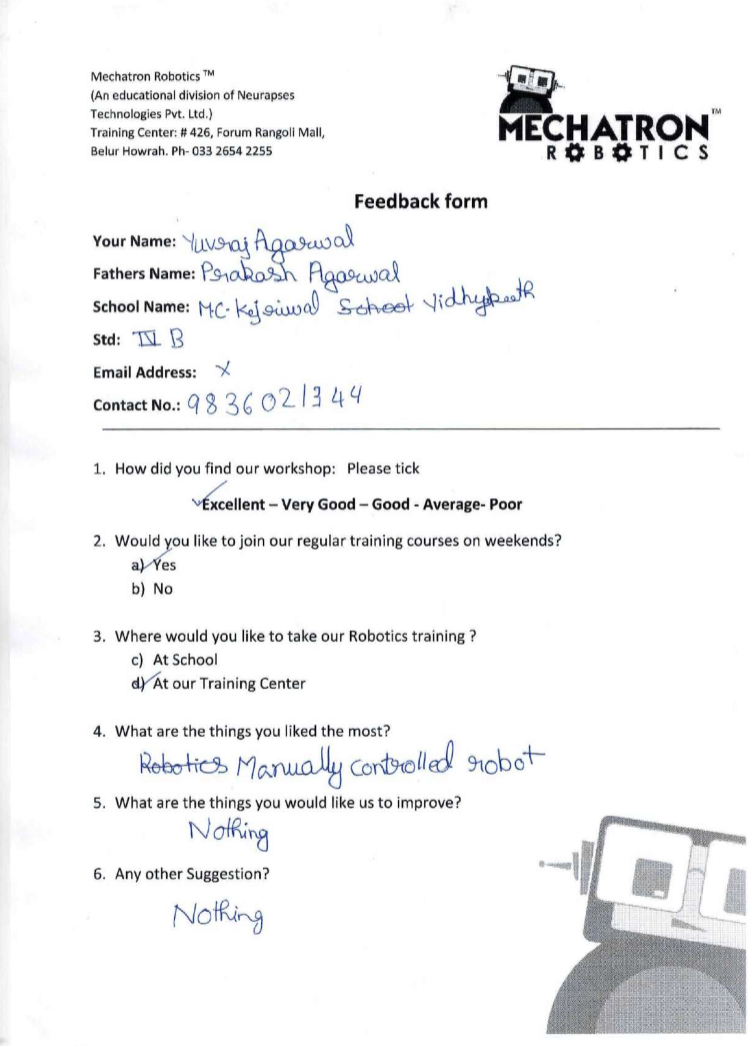 Mechatron Robotics TM
(An educational division of Neurapses
Technologies Pvt. Ltd.)
Training Center: # 426, Forum Rangoli Mall,
Belur Howrah. Ph- 033 2654 2255
MECHATRON TM
ROBOTICS
Feedback form
Your Name: Yuvraj Agarwal
Fathers Name: Prakash Agarwal
School Name: MC. Kejriwal School Vidhypeeth
Std: IV B
Email Address: X
Contact No.: 9836021344
1. How did you find our workshop: Please tick
Excellent – Very Good – Good - Average- Poor
2. Would you like to join our regular training courses on weekends?
a) Yes
b) No
3. Where would you like to take our Robotics training ?
c) At School
d) At our Training Center
4. What are the things you liked the most?
Robotics Manually controlled robot
5. What are the things you would like us to improve?
Nothing
6. Any other Suggestion?
Nothing